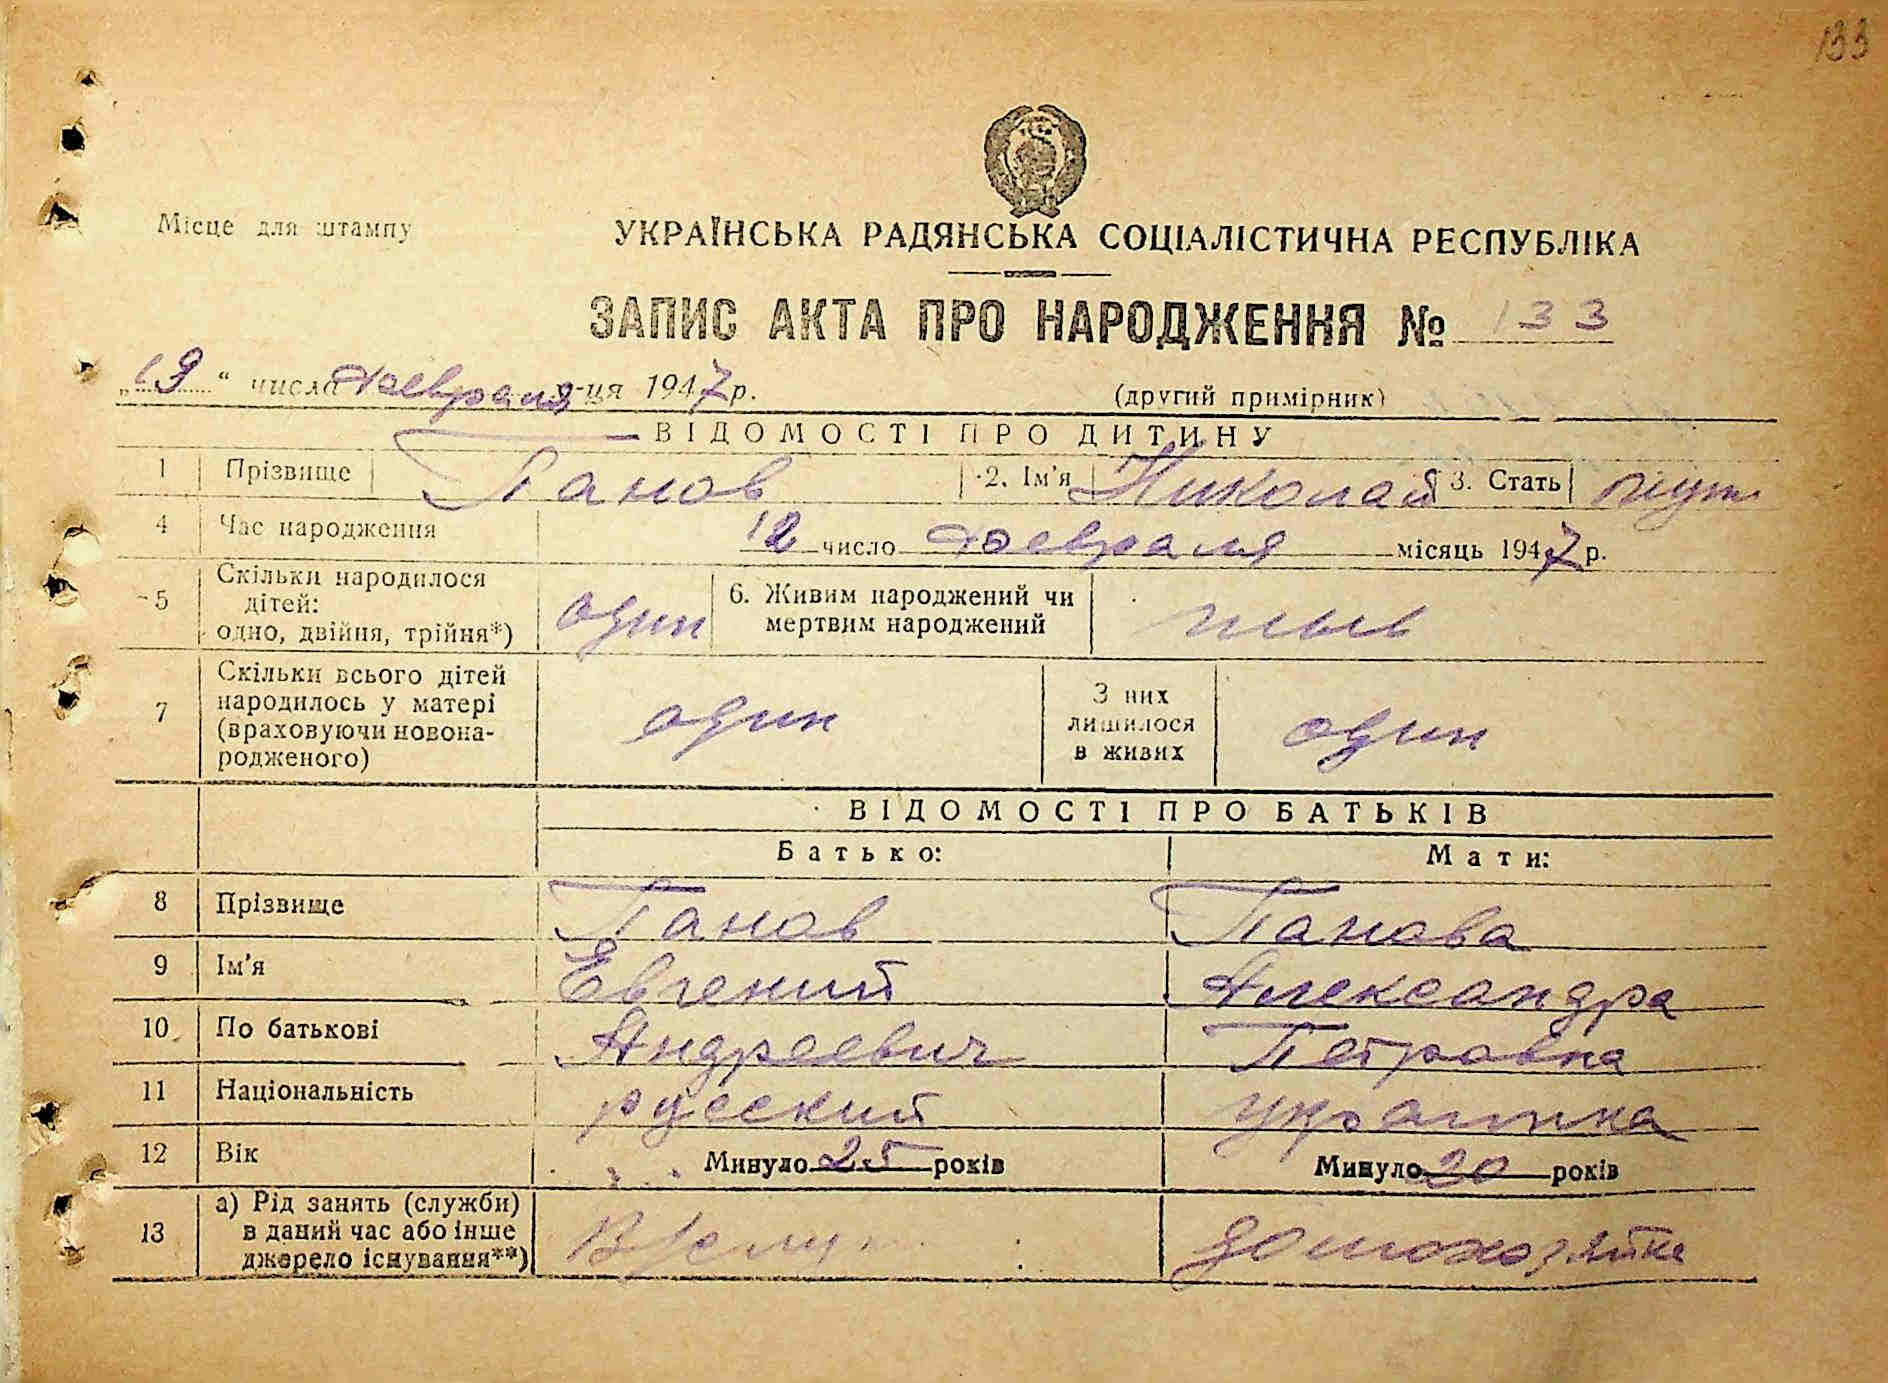 133
Місце для штампу
УКРАЇНСЬКА РАДЯНСЬКА СОЦІАЛІСТИЧНА РЕСПУБЛІКА
ЗАПИС АКТА ПРО НАРОДЖЕННЯ № 133
„19“ числа Февраля м-ця 1947 р. (другий примірник)
ВІДОМОСТІ ПРО ДИТИНУ
1 Прізвище Панов 2. Ім'я Николай 3. Стать муж
4 Час народження 12 число Февраля місяць 1947 р.
5 Скільки народилося
дітей:
одно, двійня, трійня*) один
6. Живим народжений чи
мертвим народжений
7 Скільки всього дітей
народилось у матері
(враховуючи новона-
родженого) один
З них
лишилося
в живих один
ВІДОМОСТІ ПРО БАТЬКІВ
Батько: Мати:
8 Прізвище Панов Панова
9 Ім'я Евгений Александра
10 По батькові Андреевич Петровна
11 Національність русский украинка
12 Вік Минуло 25 років Минуло 20 років
13 а) Рід занять (служби)
в даний час або інше
джерело існування**) домохозяйка